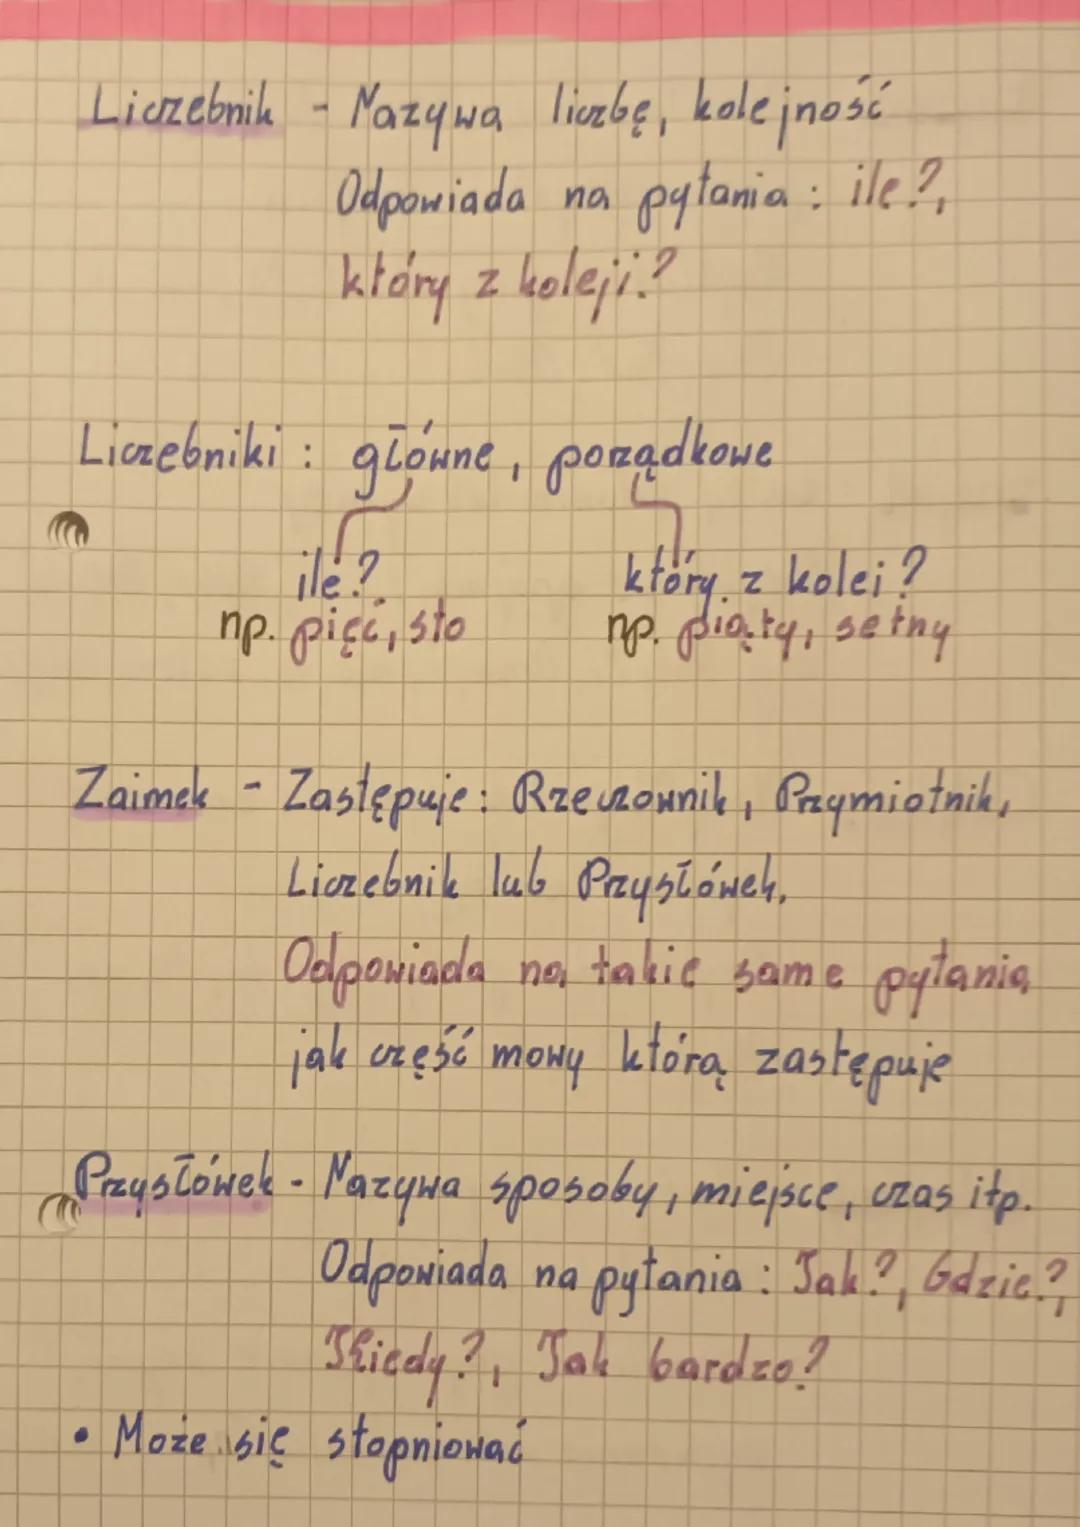 Liczebnik - Nazywa liczbę, kolejność
Odpowiada na pytania : ile?,
który z koleji?
Liczebniki : główne, porządkowe
ile? który z kolei?
np. pięć, sto np. piąty, setny
Zaimek - Zastępuje: Rzeczownik, Przymiotnik,
Liczebnik lub Przysłówek.
Odpowiada na takie same pytania
jak część mowy którą zastępuje
Przysłówek - Nazywa sposoby, miejsce, czas itp.
Odpowiada na pytania : Jak?, Gdzie?,
Kiedy?, Jak bardzo?
• Może się stopniować